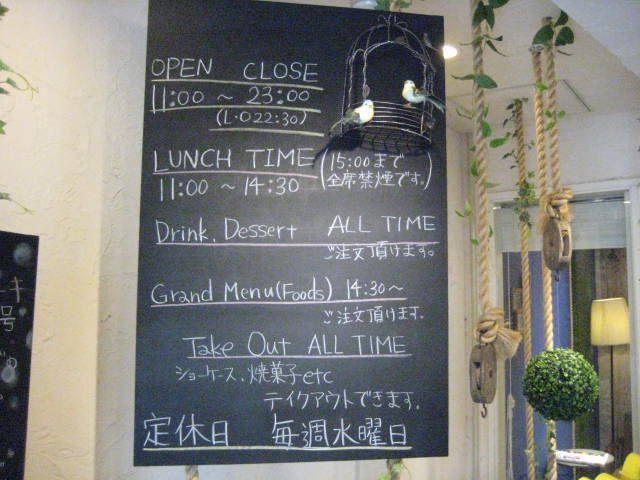 OPEN CLOSE
11:00 ~ 23:00
(L・O 22:30)
LUNCH TIME
11:00 ~ 14:30
(15:00まで
全席禁煙です。)
Drink. Dessert ALL TIME
ご注文頂けます。
Grand Menu(Foods) 14:30~
ご注文頂けます。
Take Out ALL TIME
ショーケース、焼菓子etc
テイクアウトできます。
定休日 毎週水曜日
キ
号